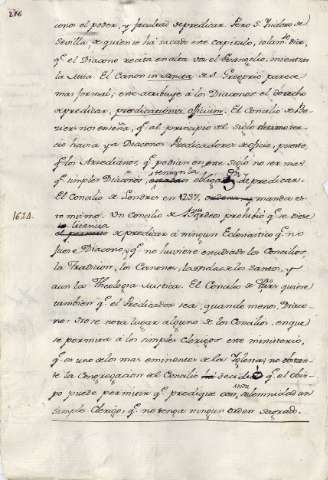 286
cono el poder, y facultad de predicar. Pero S. Isidoro de
Sevilla, de quien se há sacado este capitulo, solam.te dize,
q.e el Diacono recita en alta voz el Evangelio, mientras
la Misa. El Canon in sancta de S. Gregorio parece
mas formal, este atribuye á los Diaconos el derecho
de predicar, prædicationis officium. El Concilio de Be-
ziers nos enseña, q.e al principio del siglo
cio havia ya Diaconos Predicadores de oficio, puesto,
q.e los Arcedianos, q.e podian en este siglo no ser mas
q.e simples Diaconos, tenian la obligac.on de predicar.
El Concilio de Londres en 1237, manda es-
to mismo. Un Concilio de prohibió q.e se diese
1624.
la licencia
de predicar á ningun Eclesiastico q.e no
fuere Diacono, y q.e no huviere estudiado los Concilios,
la Tradicion, los Canones, las vidas de los Santos, y
aun la Theologia Mistica. El Concilio de Paris quiere
tambien q.e el Predicador sea, quando menos, Diaco-
no: No se nota lugar alguno de los Concilios, en que
se permita á los simples Clerigos este ministerio,
q.e es uno de los mas eminentes de la Iglesia; no obstan-
te la Congregacion del Concilio decidió q.e el obis-
po puede permitir q.e predique con solemnidad un
simple Clerigo, q.e no tenga ningun orden sagrado.